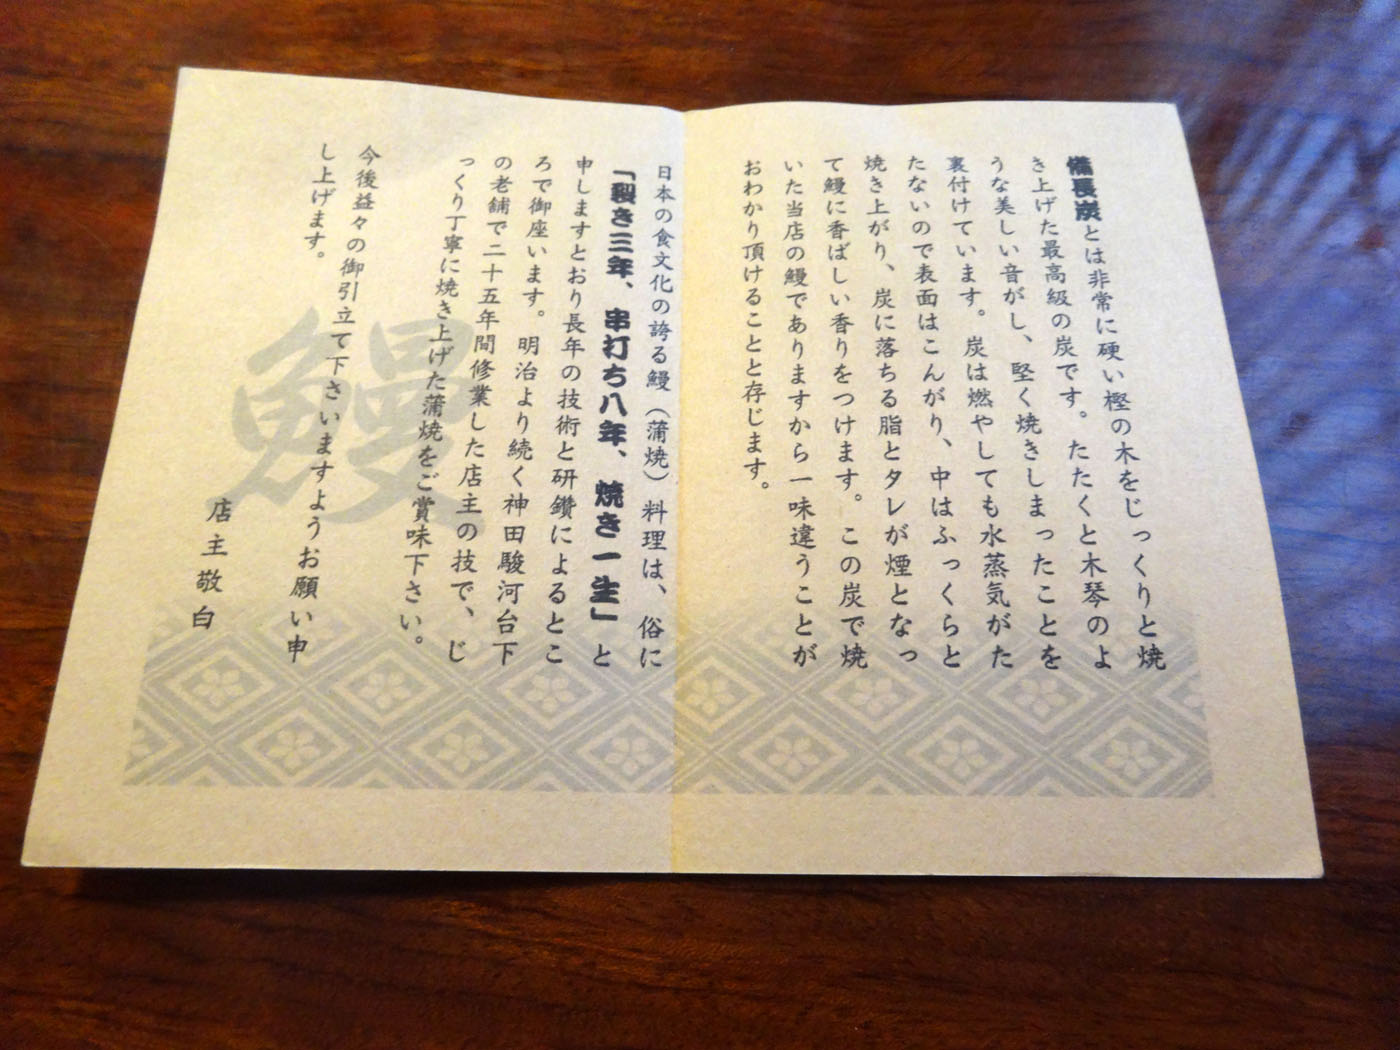 備長炭とは非常に硬い樫の木をじっくりと焼
き上げた最高級の炭です。たたくと木琴のよ
うな美しい音がし、堅く焼きしまったことを
裏付けています。炭は燃やしても水蒸気がた
たないので表面はこんがり、中はふっくらと
焼き上がり、炭に落ちる脂とタレが煙となっ
て鰻に香ばしい香りをつけます。この炭で焼
いた当店の鰻でありますから一味違うことが
おわかり頂けることと存じます。
日本の食文化の誇る鰻（蒲焼）料理は、俗に
「裂き三年、串打ち八年、焼き一生」と
申しますとおり長年の技術と研鑽によるとこ
ろで御座います。明治より続く神田駿河台下
の老舗で二十五年間修業した店主の技で、じ
っくり丁寧に焼き上げた蒲焼をご賞味下さい。
今後益々の御引立て下さいますようお願い申
し上げます。
店主敬白
鰻